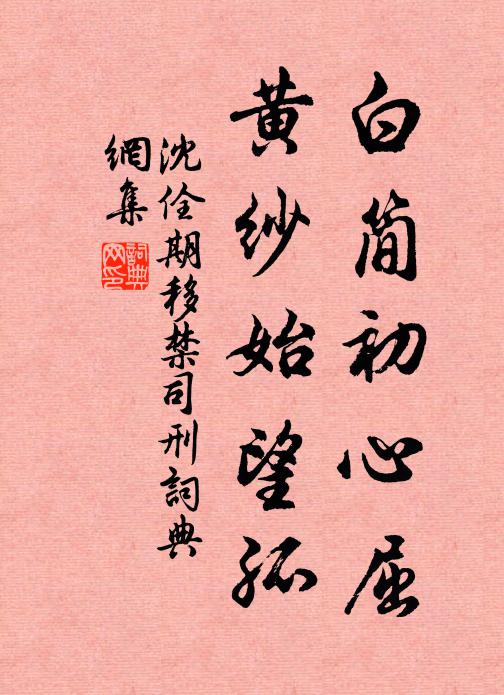 白简初心屈
黄纱始望孤
沈佺期移禁司刑詞典
網集
詞典
网印